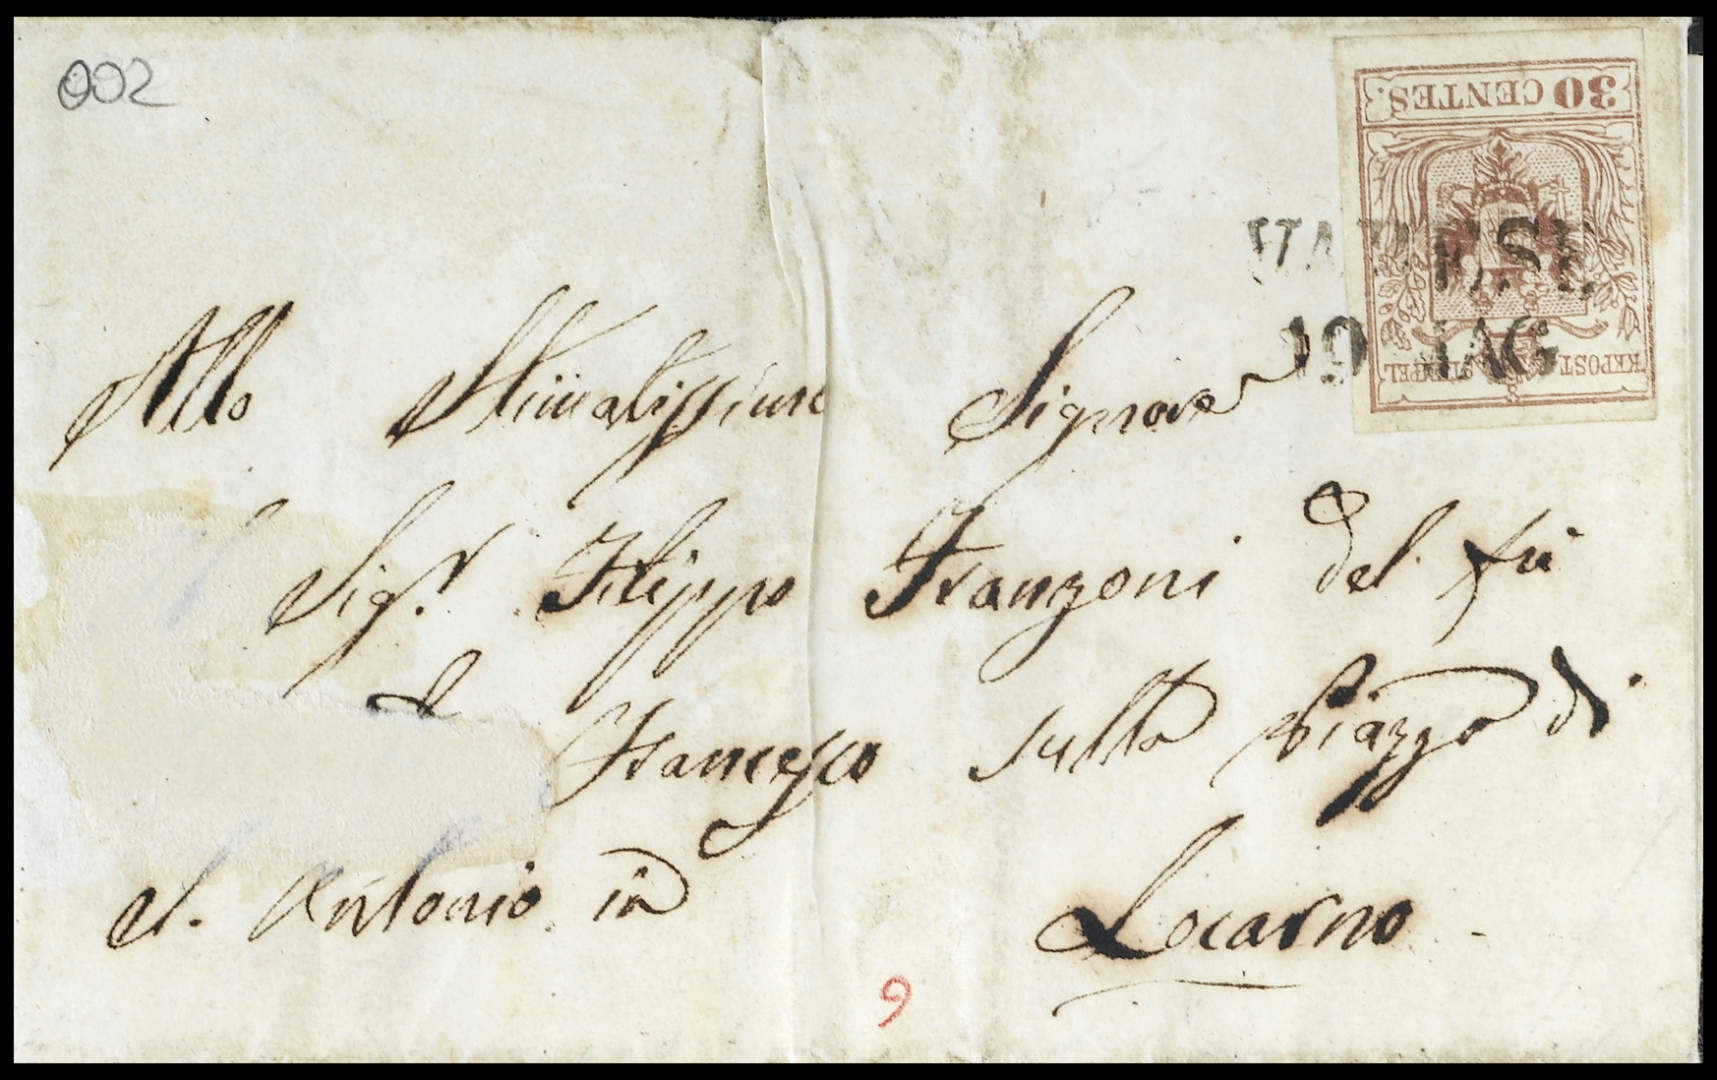 002
30 CENTES.
VARESE
19 MAG
KKPOST STEMPEL
Allo Stimatissimo Signore
Sig.r Filippo Franzoni del fù
Francesco sulla Piazza di
S. Antonio in Locarno
9